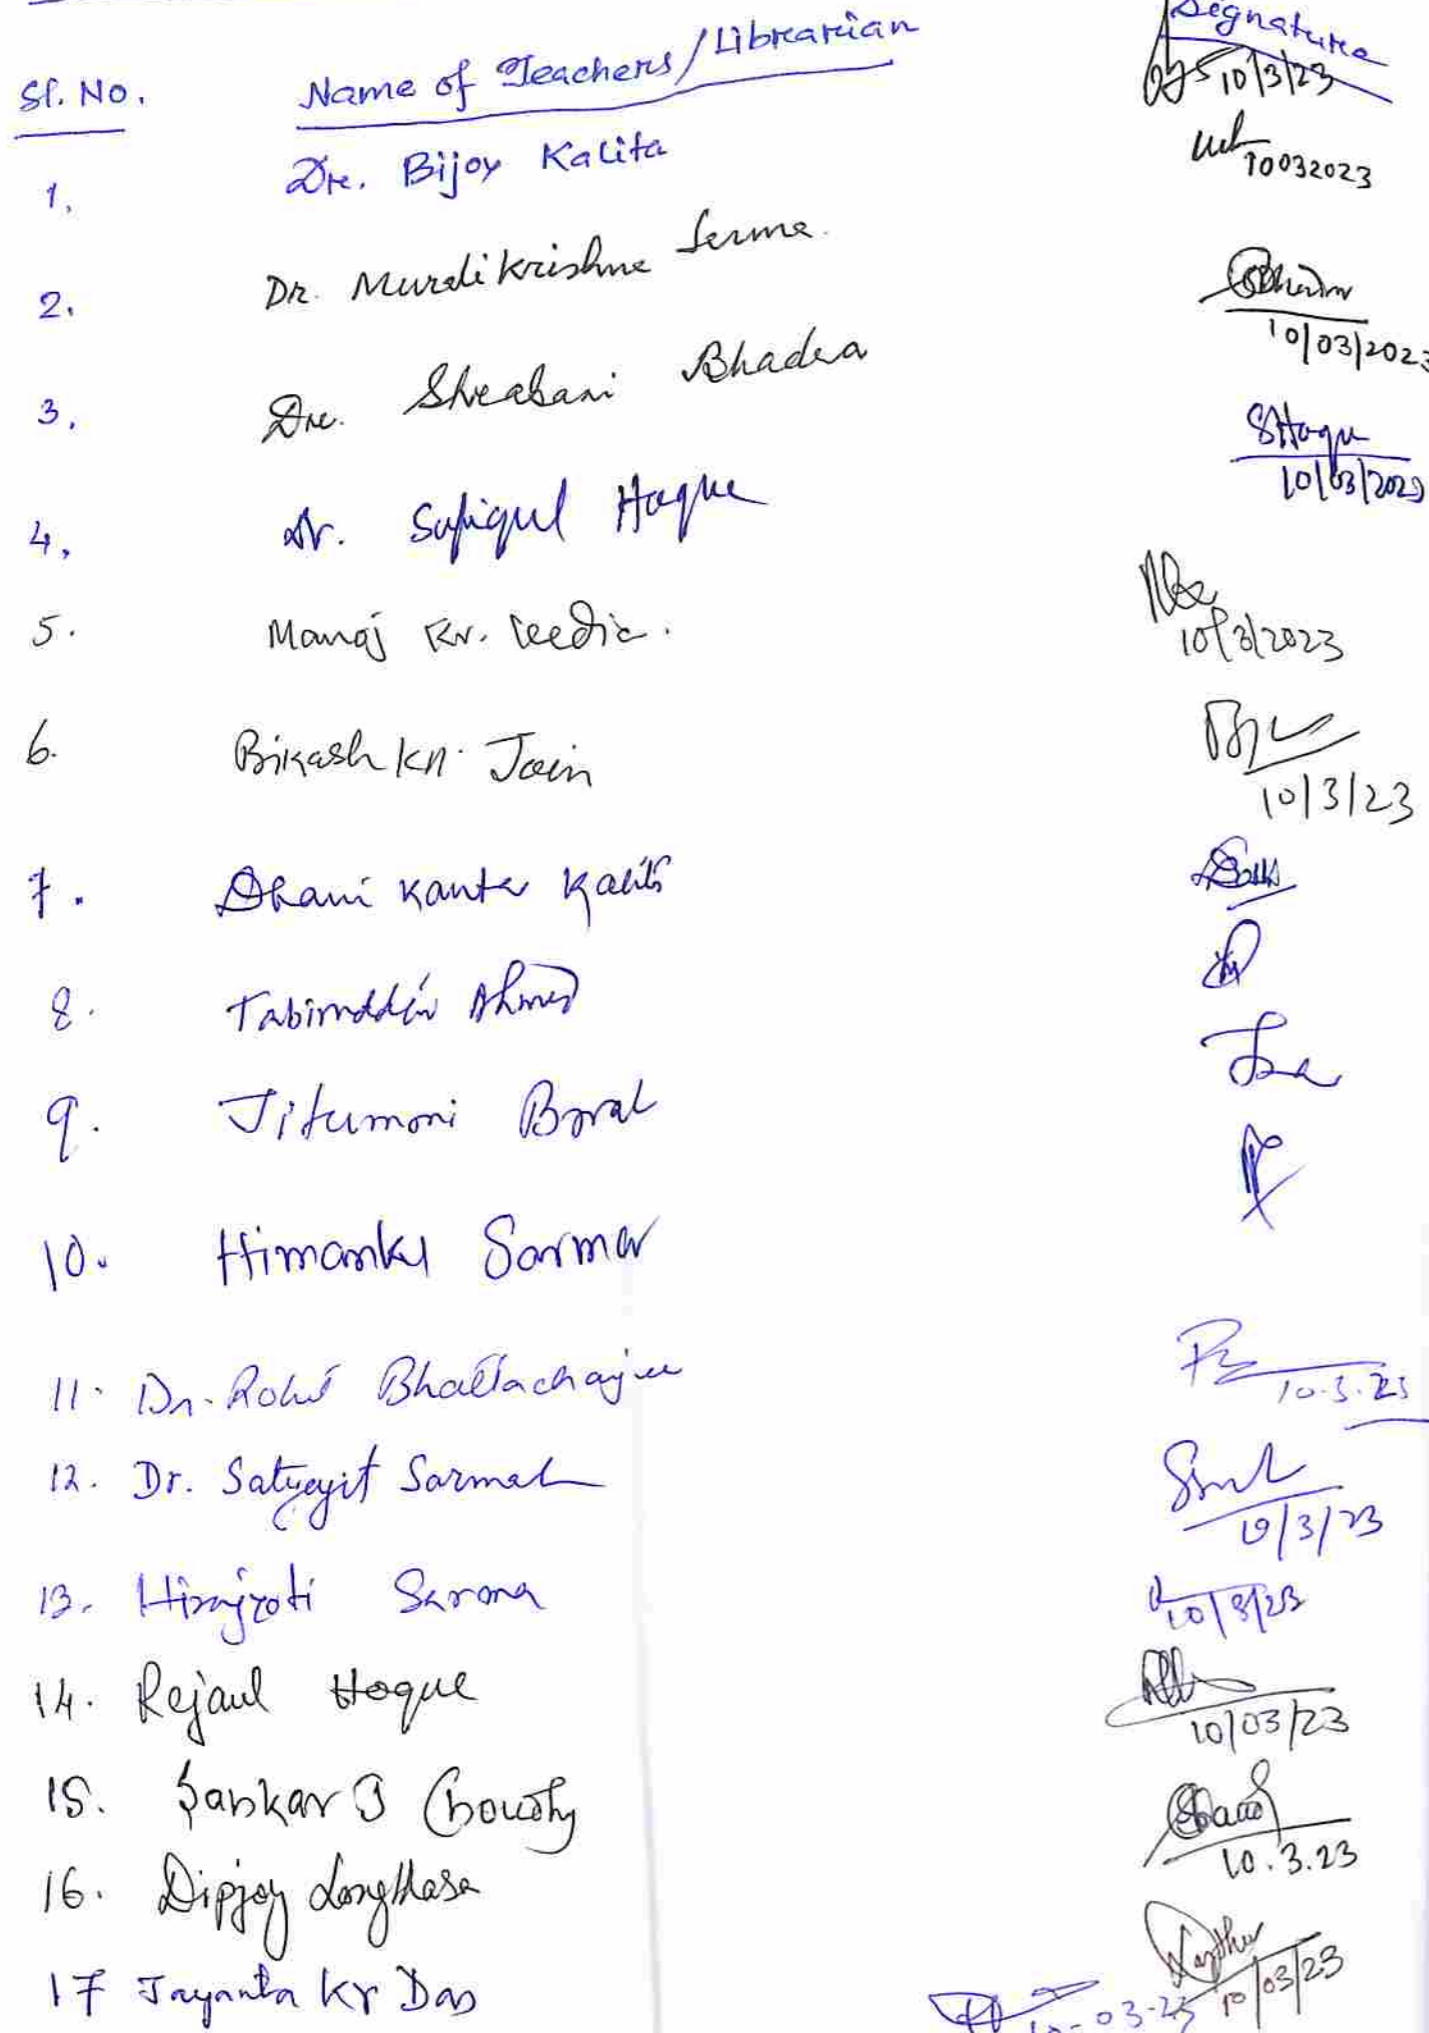 Sl. No. Name of Teachers/Librarian Signature
10/3/23
1. Dr. Bijoy Kalita
10032023
2. Dr. Murali Krishna Serma.
10/03/2023
3. Dr. Shrabani Bhadra
SHoque
10/03/2023
4. Dr. Sofiqul Hoque
5. Manoj Kr.
10/3/2023
6. Bikash Kr. Jain
10/3/23
7. Dhani Kanta Kalita
8. Tabiruddin Ahmed
9. Jitumoni Boral
10. Himanku Sarma
11. Dr. Rohit Bhattacharjee
10.3.23
12. Dr. Satyajit Sarmah
10/3/23
13. Hirajyoti Sarma
10/3/23
14. Rejaul Hoque
10/03/23
15. Sankar J Chowdhy
10.3.23
16. Dipjoy Longthasa
10/03/23
17 Jayanta Kr Das
10-03-23